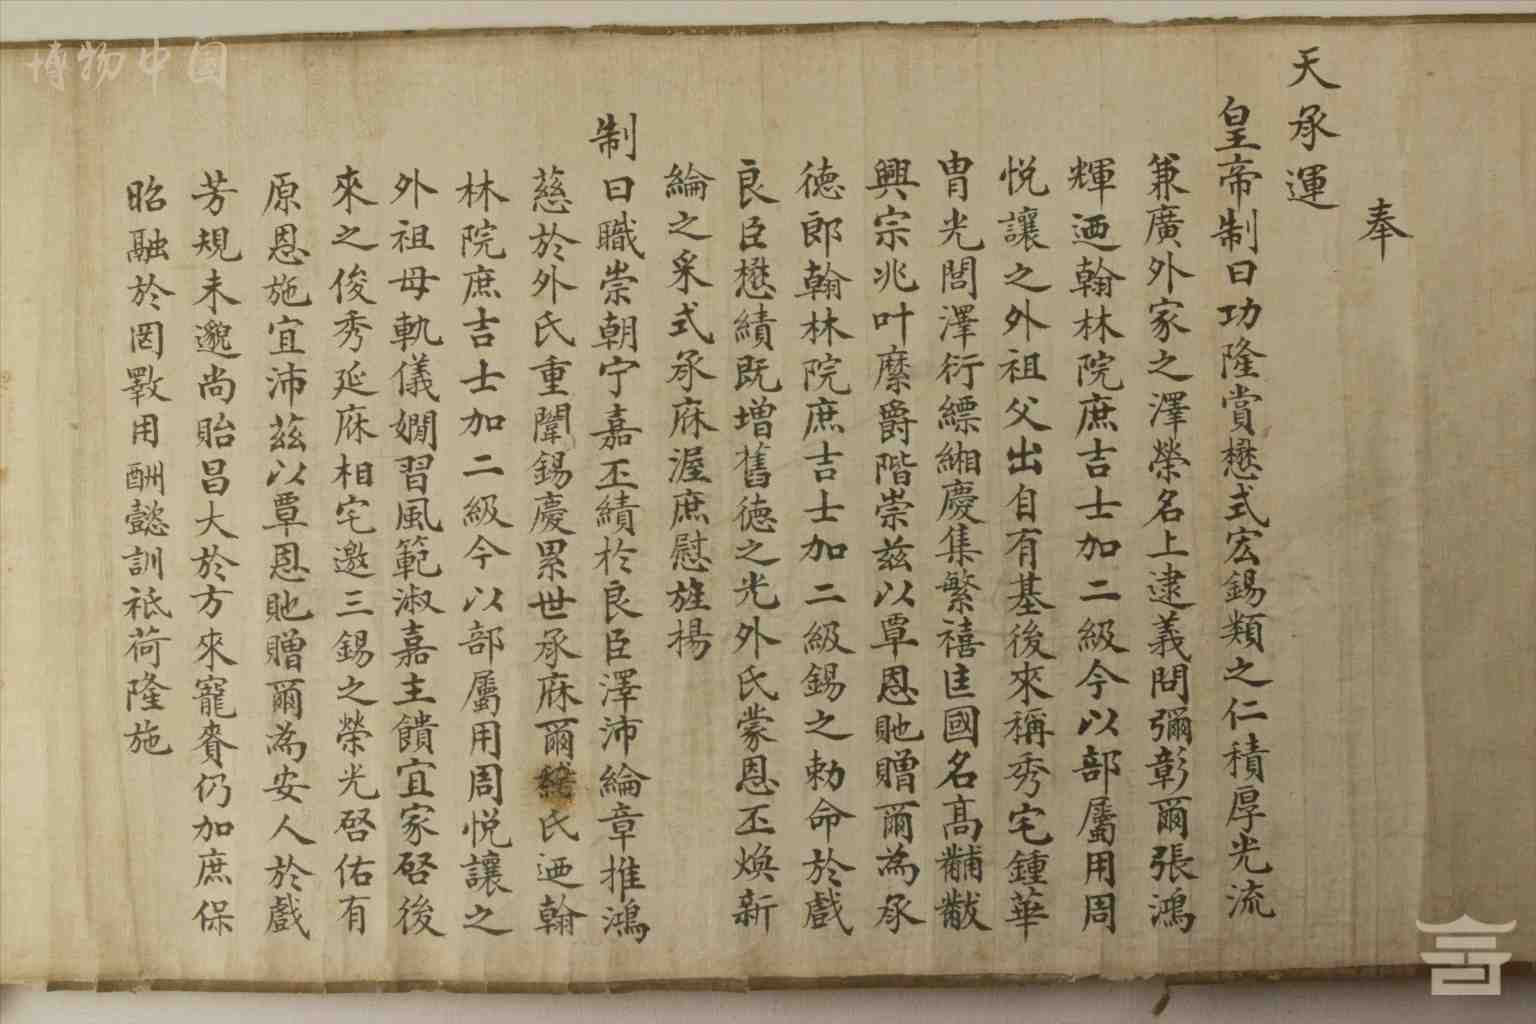 奉
天承運
皇帝制曰功隆賞懋式宏錫類之仁積厚光流
兼廣外家之澤榮名上逮義問彌彰爾張鴻
輝迺翰林院庶吉士加二級今以部屬用周
悦讓之外祖父出自有基後來稱秀宅鍾華
胄光閭澤衍縹緗慶集繁禧匡國名高黼黻
興宗兆叶縻爵階崇兹以覃恩貤贈爾為承
德郎翰林院庶吉士加二級錫之勅命於戲
良臣懋績既增舊德之光外氏蒙恩丕煥新
綸之采式承庥渥庶慰旌楊
制曰職崇朝宁嘉丕績於良臣澤沛綸章推鴻
慈於外氏重闈錫慶累世承庥爾氏迺翰
林院庶吉士加二級今以部屬用周悦讓之
外祖母軌儀嫺習風範淑嘉主饋宜家啓後
來之俊秀延庥相宅邀三錫之榮光啓佑有
原恩施宜沛茲以覃恩貤贈爾為安人於戲
芳規未邈尚貽昌大於方來寵賚仍加庶保
昭融於罔斁用酬懿訓祗荷隆施
博物中国